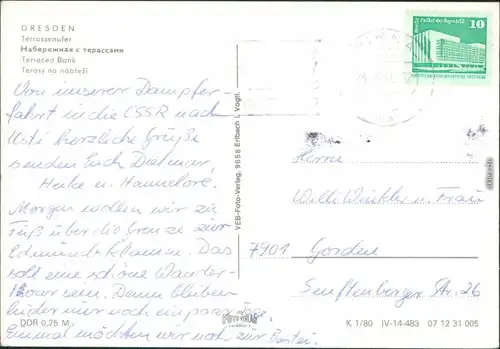 DRESDEN
Terrassenufer
Набережная с терассами
Terraced Bank
Terasy na nábřeží
Von unserer Dampfer
fahrt in die CSSR nach
Usti herzliche Grüße
senden Euch Dietmar,
Heike u. Hannelore.
Morgen wollen wir zu
Fuß über die Grenze zur
Edmundsklamm. Das
soll eine schöne Wander-
tour sein. Dann bleiben
leider nur noch ein paar Tage.
Einmal möchten wir noch zur Bastei.
DDR 0,25 M
VEB-Foto-Verlag, 9656 Erlbach i. Vogtl.
Palast der Republik
10
Herrn
Willi Winkler u. Frau
7901 Gorden
Senftenberger Str. 26
K 1/80 IV-14-483 07 12 31 005